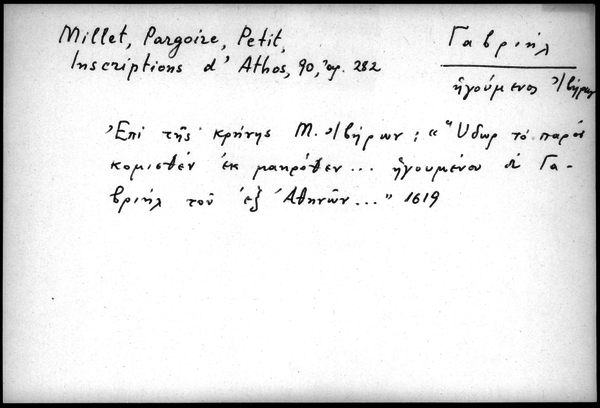 Millet, Pargoire, Petit,
Inscriptions d' Athos, 90, ἀρ. 282
Γαβριήλ
ἡγούμενος Ἰβήρων
Ἐπὶ τῆς κρήνης Μ. Ἰβήρων : « Ὕδωρ τὸ παρὸν
κομισθὲν ἐκ μακρόθεν... ἡγουμένου δὲ Γα-
βριὴλ τοῦ ἐξ Ἀθηνῶν... » 1619